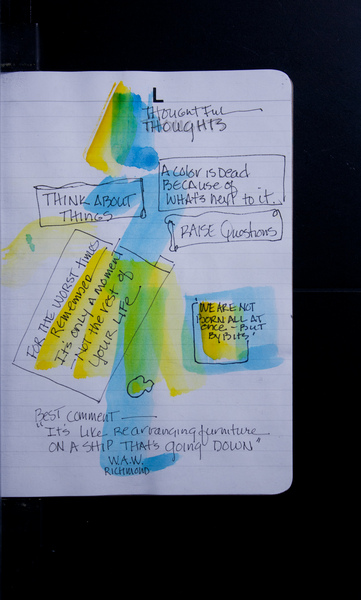 L
THOUGHTFUL
THOUGHTS
A COLOR IS DEAD
BECAUSE OF
WHAT'S NEXT TO IT..
THINK ABOUT
THINGS
RAISE QUESTIONS
FOR THE WORST TIMES
REMEMBER
IT'S ONLY A MOMENT
NOT THE REST OF
YOUR LIFE
WE ARE NOT
BORN ALL AT
ONCE - BUT
BY BITS
BEST COMMENT
"IT'S LIKE REARRANGING FURNITURE
ON A SHIP THAT'S GOING DOWN"
W.A.W.
RICHMOND